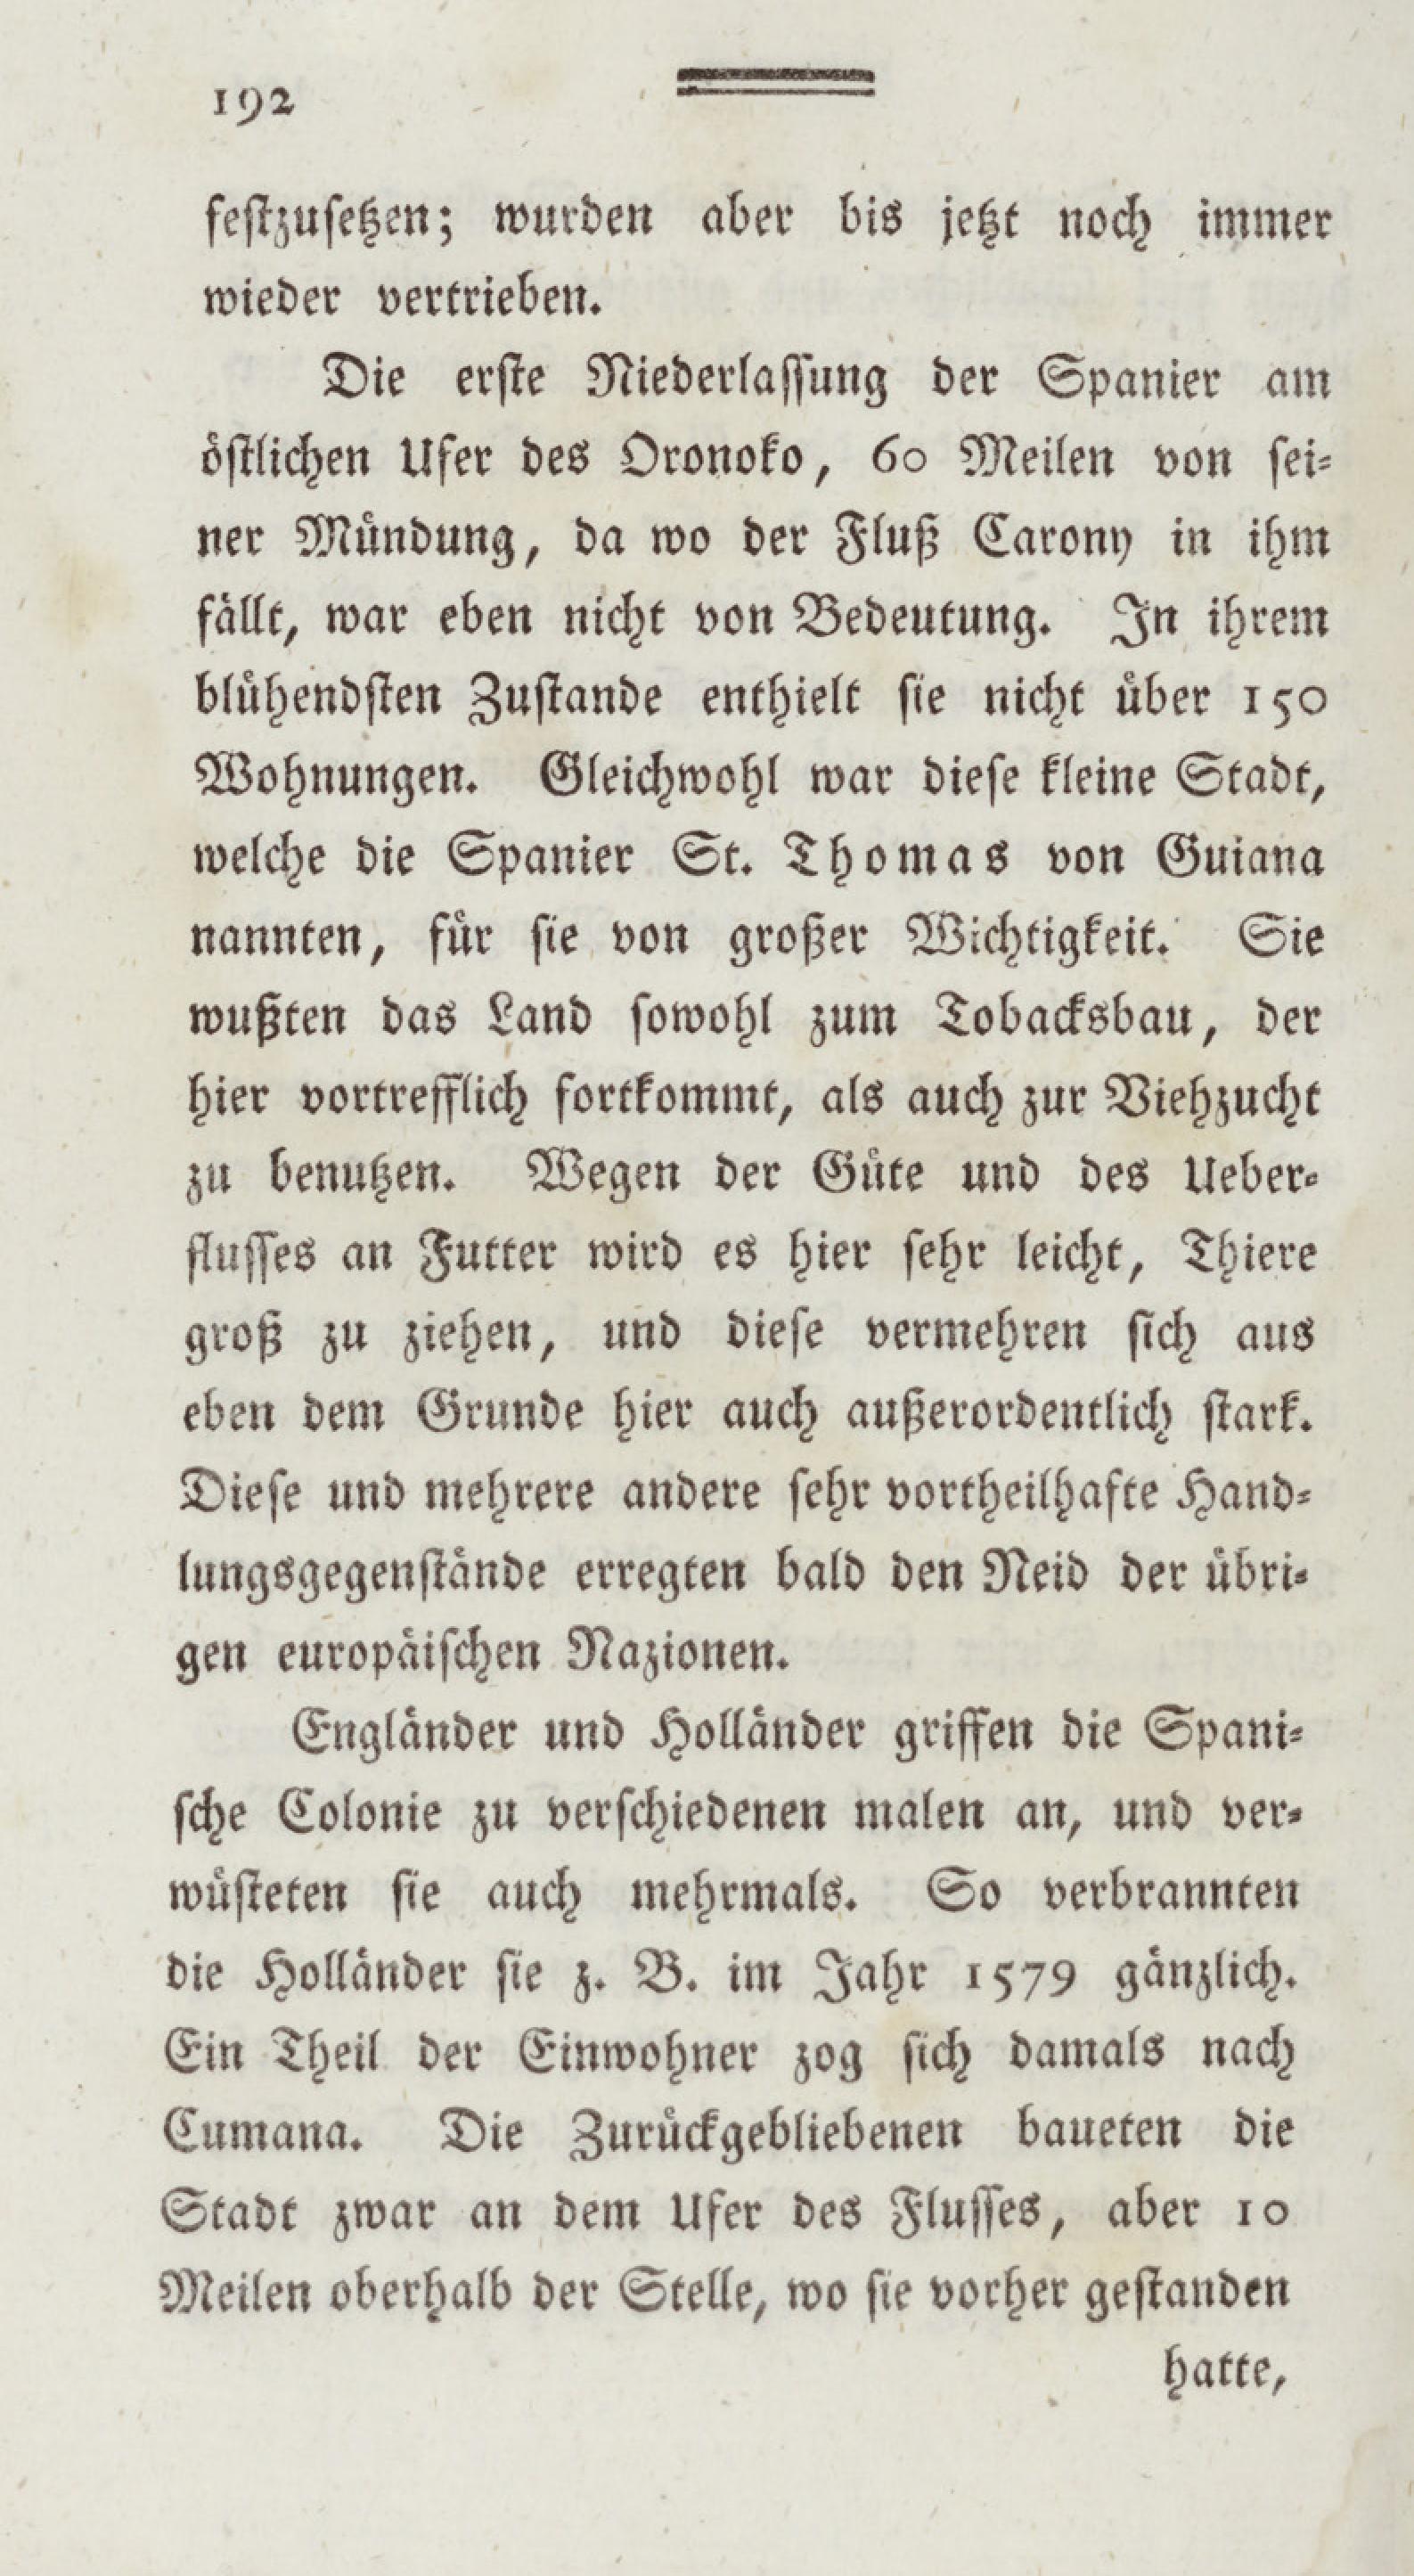 192
festzusetzen; wurden aber bis jetzt noch immer
wieder vertrieben.
Die erste Niederlassung der Spanier am
östlichen Ufer des Oronoko, 60 Meilen von sei-
ner Mündung, da wo der Fluß Carony in ihm
fällt, war eben nicht von Bedeutung. In ihrem
blühendsten Zustande enthielt sie nicht über 150
Wohnungen. Gleichwohl war diese kleine Stadt,
welche die Spanier St. Thomas von Guiana
nannten, für sie von großer Wichtigkeit. Sie
wußten das Land sowohl zum Tobacksbau, der
hier vortrefflich fortkommt, als auch zur Viehzucht
zu benutzen. Wegen der Güte und des Ueber-
flusses an Futter wird es hier sehr leicht, Thiere
groß zu ziehen, und diese vermehren sich aus
eben dem Grunde hier auch außerordentlich stark.
Diese und mehrere andere sehr vortheilhafte Hand-
lungsgegenstände erregten bald den Neid der übri-
gen europäischen Nazionen.
Engländer und Holländer griffen die Spani-
sche Colonie zu verschiedenen malen an, und ver-
wüsteten sie auch mehrmals. So verbrannten
die Holländer sie z. B. im Jahr 1579 gänzlich.
Ein Theil der Einwohner zog sich damals nach
Cumana. Die Zurückgebliebenen baueten die
Stadt zwar an dem Ufer des Flusses, aber 10
Meilen oberhalb der Stelle, wo sie vorher gestanden
hatte,